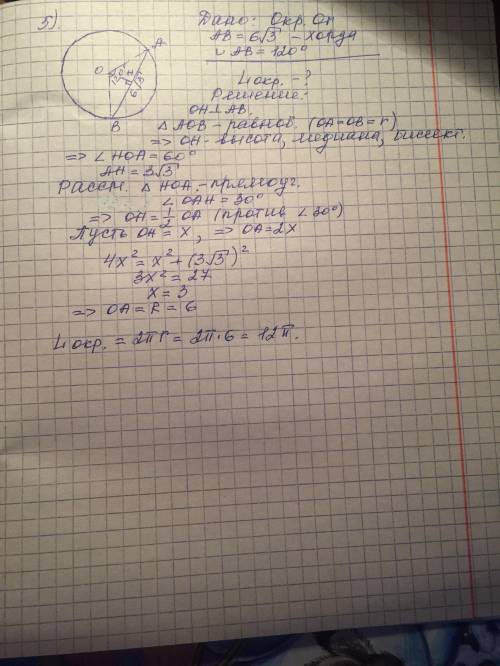 5)
Дано: Окр. Оп
AB = 6√3 - хорда
∪ AB = 120°
A
O
H
6√3
B
Lокр. - ?
Решение:
OH⊥AB.
△ AOB - равноб. (OA=OB=r)
=> OH - высота, медиана, биссект.
=> ∠HOA = 60°
AH = 3√3
Рассм. △ HOA - прямоуг.
∠OAH = 30°
=> OH = 1/2 OA (против ∠30°)
Пусть OH = x, => OA = 2x
4x² = x² + (3√3)²
3x² = 27
x = 3
=> OA = R = 6
Lокр. = 2πr = 2π·6 = 12π.